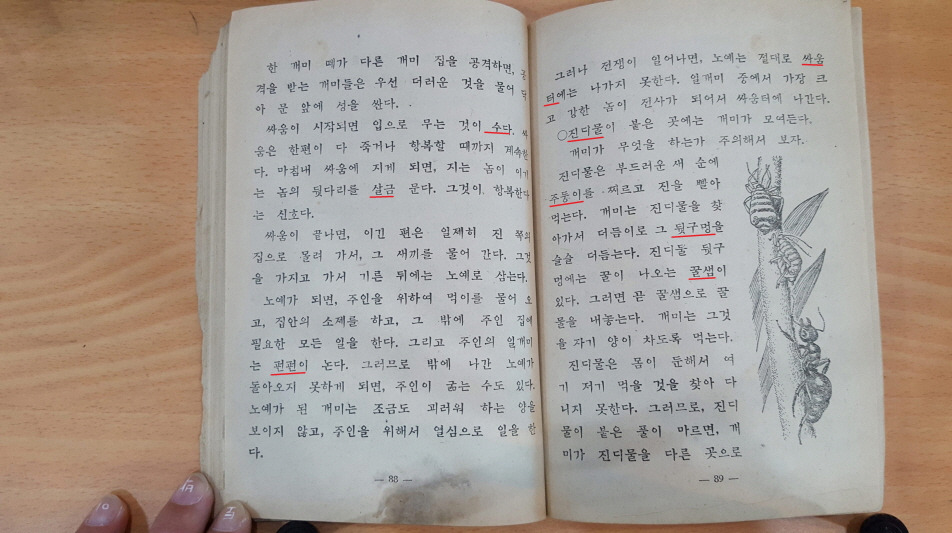 한 개미 떼가 다른 개미 집을 공격하면, 공
격을 받는 개미들은 우선 더러운 것을 물어
아 문 앞에 성을 싼다.
싸움이 시작되면 입으로 무는 것이 수다. 싸
움은 한편이 다 죽거나 항복할 때까지 계속한
다. 마침내 싸움에 지게 되면, 지는 놈이 이기
는 놈의 뒷다리를 살금 문다. 그것이 항복한다
는 신호다.
싸움이 끝나면, 이긴 편은 일제히 진 쪽의
집으로 몰려 가서, 그 새끼를 물어 간다. 그것
을 가지고 가서 기른 뒤에는 노예로 삼는다.
노예가 되면, 주인을 위하여 먹이를 물어 오
고, 집안의 소제를 하고, 그 밖에 주인 집에
필요한 모든 일을 한다. 그리고 주인의 일개미
는 편편이 논다. 그러므로 밖에 나간 노예가
돌아오지 못하게 되면, 주인이 굶는 수도 있다.
노예가 된 개미는 조금도 괴러워 하는 양을
보이지 않고, 주인을 위해서 열심으로 일을 한
다.
— 88 —
그러나 전쟁이 일어나면, 노예는 절대로 싸움
터에는 나가지 못한다. 일개미 중에서 가장 크
고 강한 놈이 전사가 되어서 싸움터에 나간다.
○진디물이 붙은 곳에는 개미가 모여든다.
개미가 무엇을 하는가 주의해서 보자.
진디물은 부드러운 새 순에
주둥이를 찌르고 진을 빨아
먹는다. 개미는 진디물을 찾
아가서 더듬이로 그 뒷구멍을
슬슬 더듬는다. 진디물 뒷구
멍에는 꿀이 나오는 꿀샘이
있다. 그러면 곧 꿀샘으로 꿀
물을 내놓는다. 개미는 그것
을 자기 양이 차도록 먹는다.
진디물은 몸이 둔해서 여
기 저기 먹을 것을 찾아 다
니지 못한다. 그러므로, 진디
물이 붙은 풀이 마르면, 개
미가 진디물을 다른 곳으로
— 89 —